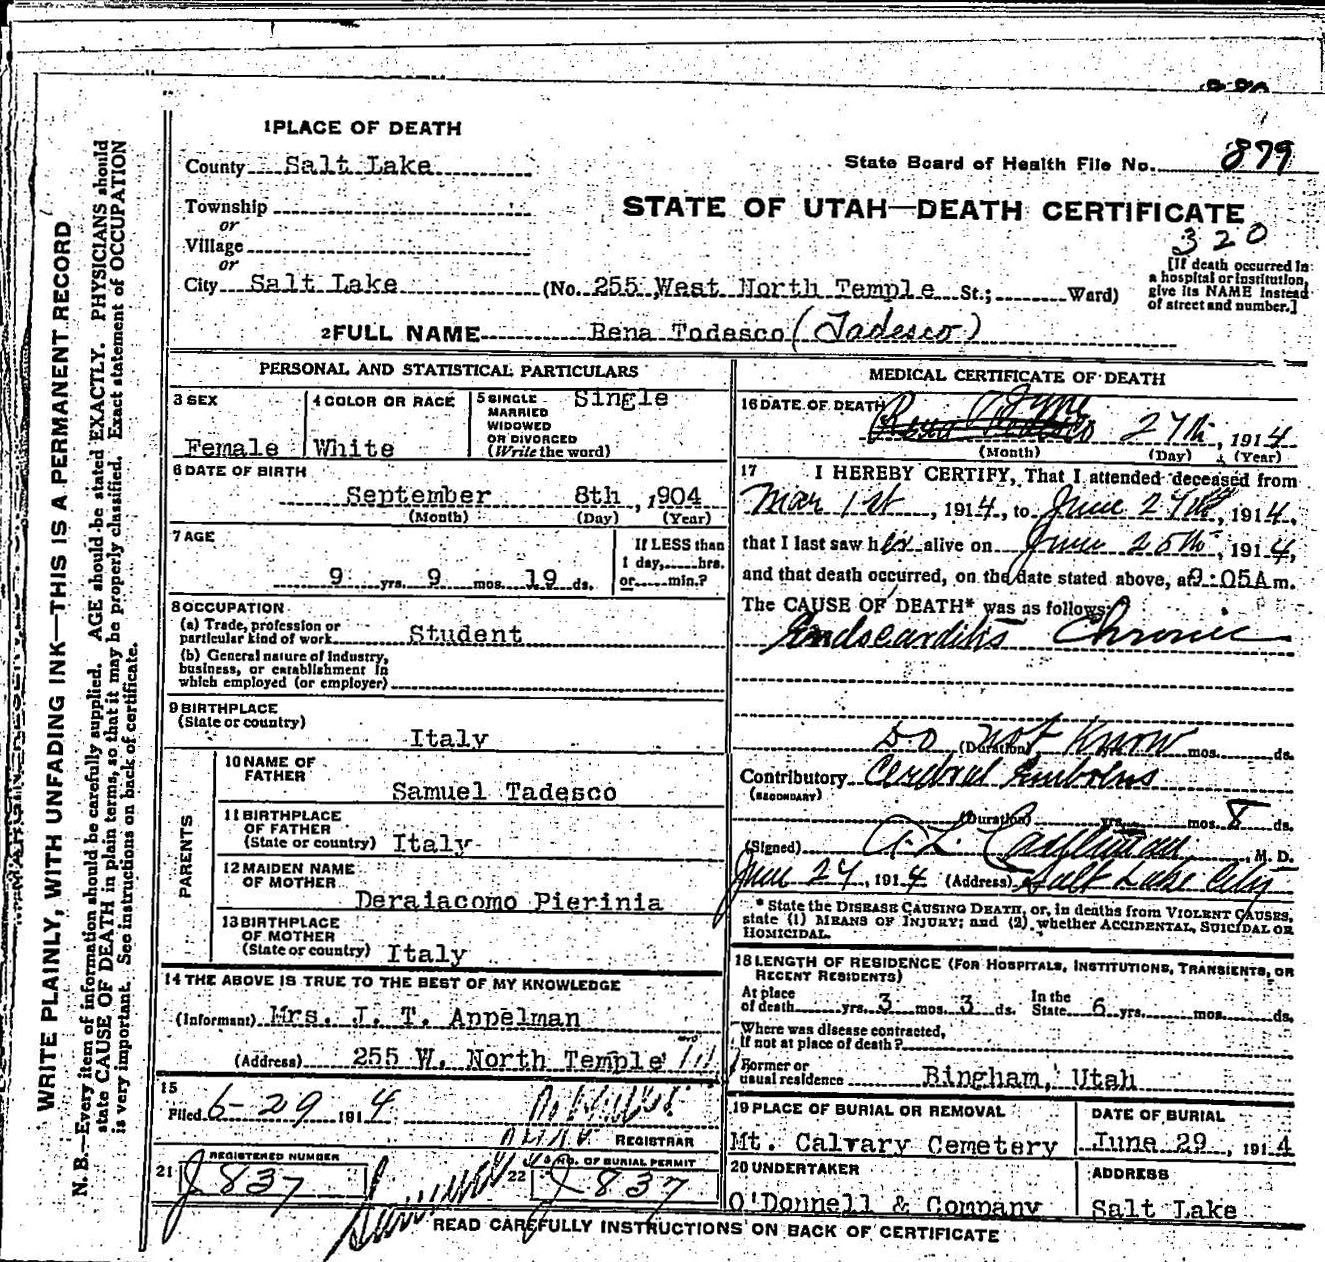 1 PLACE OF DEATH
County Salt Lake
State Board of Health File No. 879
Township
or
Village
or
City Salt Lake
STATE OF UTAH—DEATH CERTIFICATE
320
[If death occurred in
a hospital or institution,
give its NAME instead
of street and number.]
(No. 255 West North Temple St.; Ward)
2 FULL NAME Rena Todesco (Tadesco)
PERSONAL AND STATISTICAL PARTICULARS
3 SEX
Female
4 COLOR OR RACE
White
5 SINGLE
MARRIED
WIDOWED
OR DIVORCED
(Write the word)
Single
6 DATE OF BIRTH
September 8th, 1904
(Month) (Day) (Year)
7 AGE
9 yrs. 9 mos. 19 ds.
If LESS than
1 day, hrs.
or min.?
8 OCCUPATION
(a) Trade, profession or
particular kind of work Student
(b) General nature of industry,
business, or establishment in
which employed (or employer)
9 BIRTHPLACE
(State or country)
Italy
PARENTS
10 NAME OF
FATHER
Samuel Tadesco
11 BIRTHPLACE
OF FATHER
(State or country) Italy
12 MAIDEN NAME
OF MOTHER
Deraiacomo Pierinia
13 BIRTHPLACE
OF MOTHER
(State or country) Italy
14 THE ABOVE IS TRUE TO THE BEST OF MY KNOWLEDGE
(Informant) Mrs. J. T. Appelman
(Address) 255 W. North Temple
15
Filed 6-29 1914
REGISTRAR
21 REGISTERED NUMBER
J 837
22 NO. OF BURIAL PERMIT
J 837
MEDICAL CERTIFICATE OF DEATH
16 DATE OF DEATH
June 27th, 1914
(Month) (Day) (Year)
17 I HEREBY CERTIFY, That I attended deceased from
Mar 1st, 1914, to June 27th, 1914,
that I last saw her alive on June 25th, 1914,
and that death occurred, on the date stated above, at 9:05 A m.
The CAUSE OF DEATH* was as follows:
Endocarditis Chronic
Do not Know
(Duration) mos. ds.
Contributory Cerebral Embolus
(SECONDARY)
(Duration) yrs. mos. 8 ds.
(Signed) A. L. M. D.
June 27, 1914 (Address) Salt Lake City
* State the DISEASE CAUSING DEATH, or, in deaths from VIOLENT CAUSES,
state (1) MEANS OF INJURY; and (2) whether ACCIDENTAL, SUICIDAL OR
HOMICIDAL.
18 LENGTH OF RESIDENCE (FOR HOSPITALS, INSTITUTIONS, TRANSIENTS, OR
RECENT RESIDENTS)
At place
of death yrs. 3 mos. 3 ds.
In the
State 6 yrs. mos. ds.
Where was disease contracted,
if not at place of death?
Former or
usual residence Bingham, Utah
19 PLACE OF BURIAL OR REMOVAL
Mt. Calvary Cemetery
DATE OF BURIAL
June 29, 1914
20 UNDERTAKER
O'Donnell & Company
ADDRESS
Salt Lake
READ CAREFULLY INSTRUCTIONS ON BACK OF CERTIFICATE
WRITE PLAINLY, WITH UNFADING INK—THIS IS A PERMANENT RECORD
N. B.—Every item of information should be carefully supplied. AGE should be stated EXACTLY. PHYSICIANS should
state CAUSE OF DEATH in plain terms, so that it may be properly classified. Exact statement of OCCUPATION
is very important. See instructions on back of certificate.